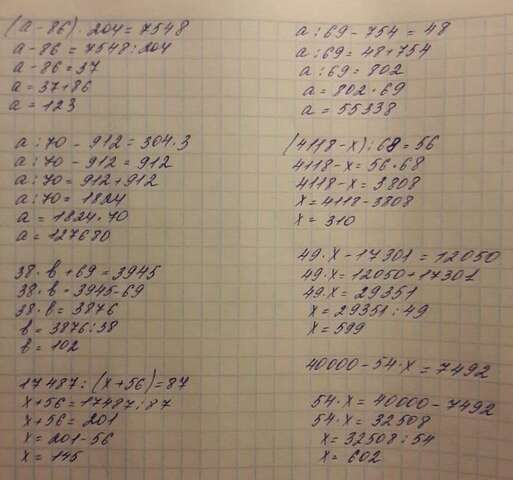 (a - 86) · 204 = 7548
a - 86 = 7548 : 204
a - 86 = 37
a = 37 + 86
a = 123
a : 70 - 912 = 304 · 3
a : 70 - 912 = 912
a : 70 = 912 + 912
a : 70 = 1824
a = 1824 · 70
a = 127680
38 · b + 69 = 3945
38 · b = 3945 - 69
38 · b = 3876
b = 3876 : 38
b = 102
17487 : (x + 56) = 87
x + 56 = 17487 : 87
x + 56 = 201
x = 201 - 56
x = 145
a : 69 - 754 = 48
a : 69 = 48 + 754
a : 69 = 802
a = 802 · 69
a = 55338
(4118 - x) : 68 = 56
4118 - x = 56 · 68
4118 - x = 3808
x = 4118 - 3808
x = 310
49 · x - 17301 = 12050
49 · x = 12050 + 17301
49 · x = 29351
x = 29351 : 49
x = 599
40000 - 54 · x = 7492
54 · x = 40000 - 7492
54 · x = 32508
x = 32508 : 54
x = 602